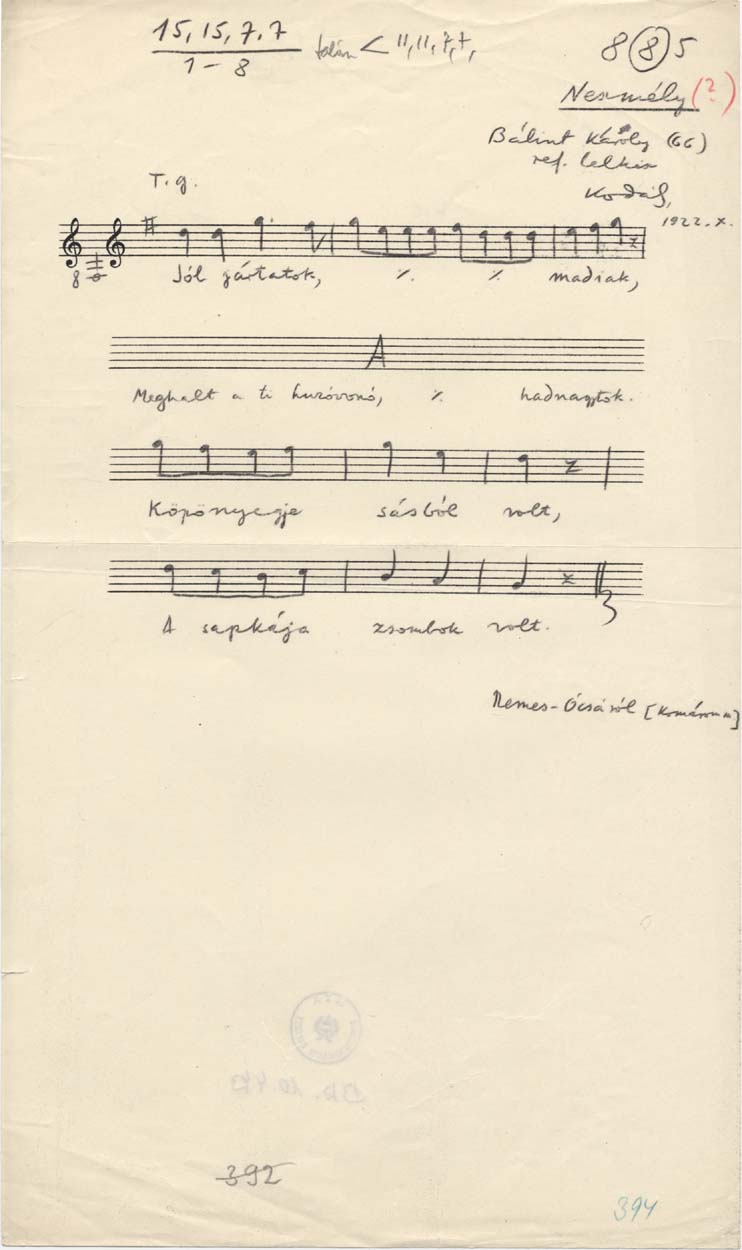 15, 15, 7, 7
1 – 8
talán < 11, 11, 7, 7,
8 8 5
Neszmély (?)
Bálint Károly (66)
ref. lelkész
Kodály,
1922. X.
T. g.
8
Jól jártatok, ٪. ٪. madiak,
A
Meghalt a ti huzóvonó, ٪. hadnagytok.
Köpönyegje sásból volt,
A sapkája zsombok volt.
Nemes-Ócsáról [Komárom m]
392
394